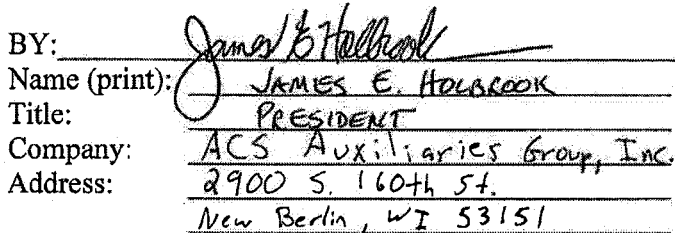 BY: James E Holbrook
Name (print): JAMES E. HOLBROOK
Title: PRESIDENT
Company: ACS Auxiliaries Group, Inc.
Address: 2900 S. 160th St.
New Berlin, WI 53151